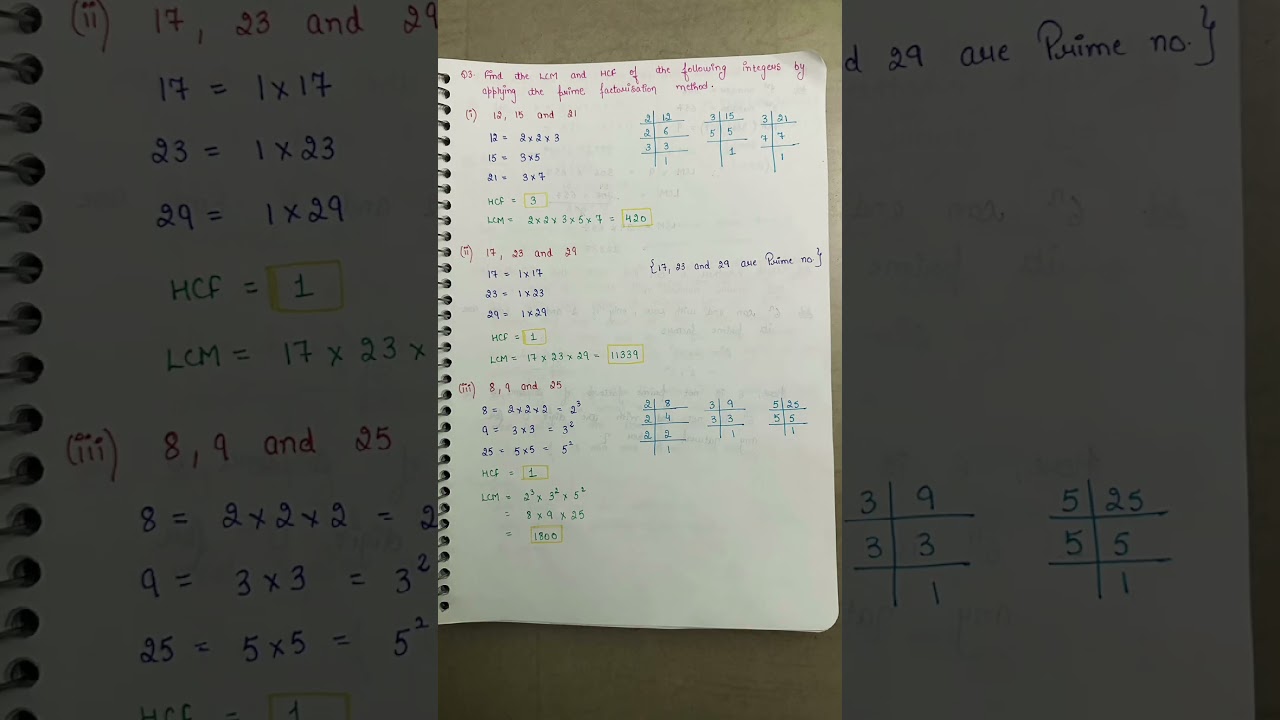 Q3. Find the LCM and HCF of the following integers by
applying the prime factorisation method.
(i) 12, 15 and 21
12 = 2×2×3
15 = 3×5
21 = 3×7
2 | 12
2 | 6
3 | 3
1
3 | 15
5 | 5
1
3 | 21
7 | 7
1
HCF = 3
LCM = 2×2×3×5×7 = 420
(ii) 17, 23 and 29
{17, 23 and 29 are Prime no.}
17 = 1×17
23 = 1×23
29 = 1×29
HCF = 1
LCM = 17×23×29 = 11339
(iii) 8, 9 and 25
8 = 2×2×2 = 2³
9 = 3×3 = 3²
25 = 5×5 = 5²
2 | 8
2 | 4
2 | 2
1
3 | 9
3 | 3
1
5 | 25
5 | 5
1
HCF = 1
LCM = 2³×3²×5²
= 8×9×25
= 1800
(ii) 17, 23 and 29
17 = 1×17
23 = 1×23
29 = 1×29
HCF = 1
LCM = 17×23×
(iii) 8, 9 and 25
8 = 2×2×2 = 2
9 = 3×3 = 3²
25 = 5×5 = 5²
HCF = 1
d 29 are Prime no.}
3 | 9
3 | 3
1
5 | 25
5 | 5
1